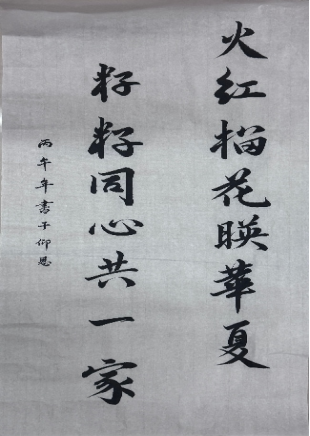 火红榴花暎華夏
籽籽同心共一家
丙午年書于仰恩